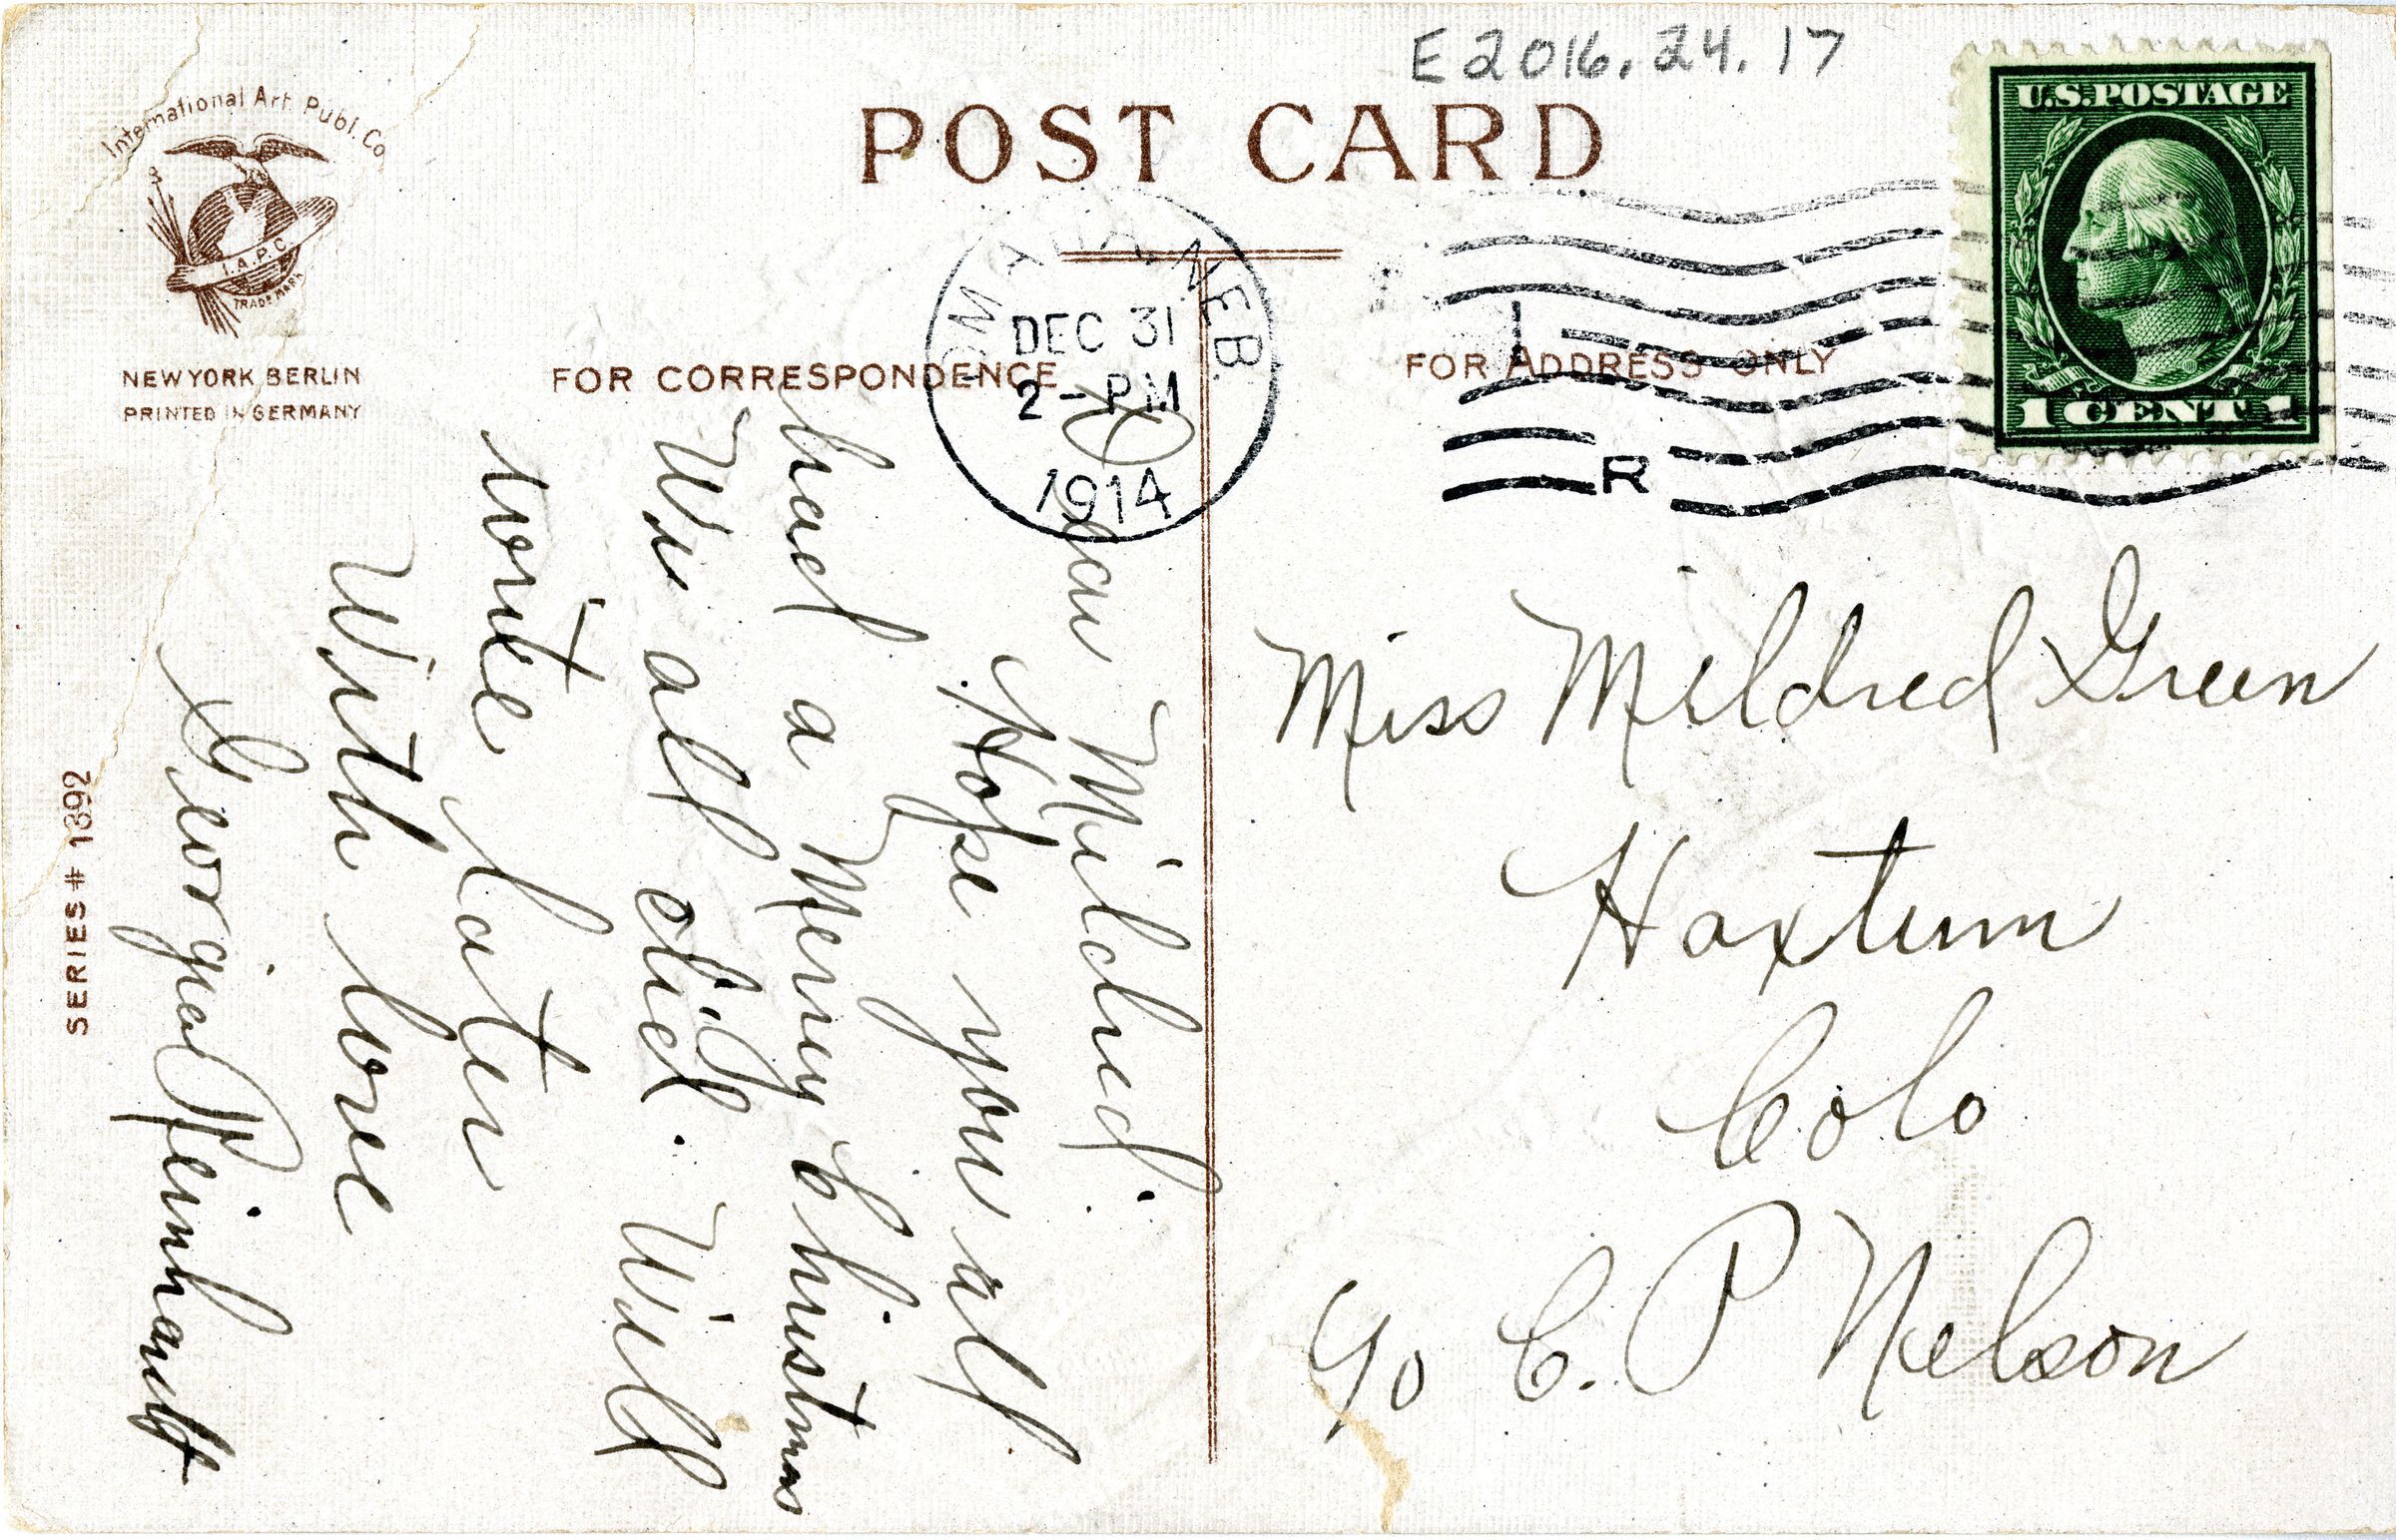 E2016.24.17
International Art. Publ. Co.
I.A.P.C
TRADE MARK
NEW YORK BERLIN
PRINTED IN GERMANY
POST CARD
U.S. POSTAGE
1 CENT 1
OMAHA, NEB.
DEC 31
2-PM
1914
1
R
FOR CORRESPONDENCE
FOR ADDRESS ONLY
SERIES # 1892
Dear Mildred.
Hope you all
had a Merry Christmas
We all did. Will
write later
With love
Georgia Reinhardt
Miss Mildred Green
Haxtum
Colo
c/o C. P Nelson